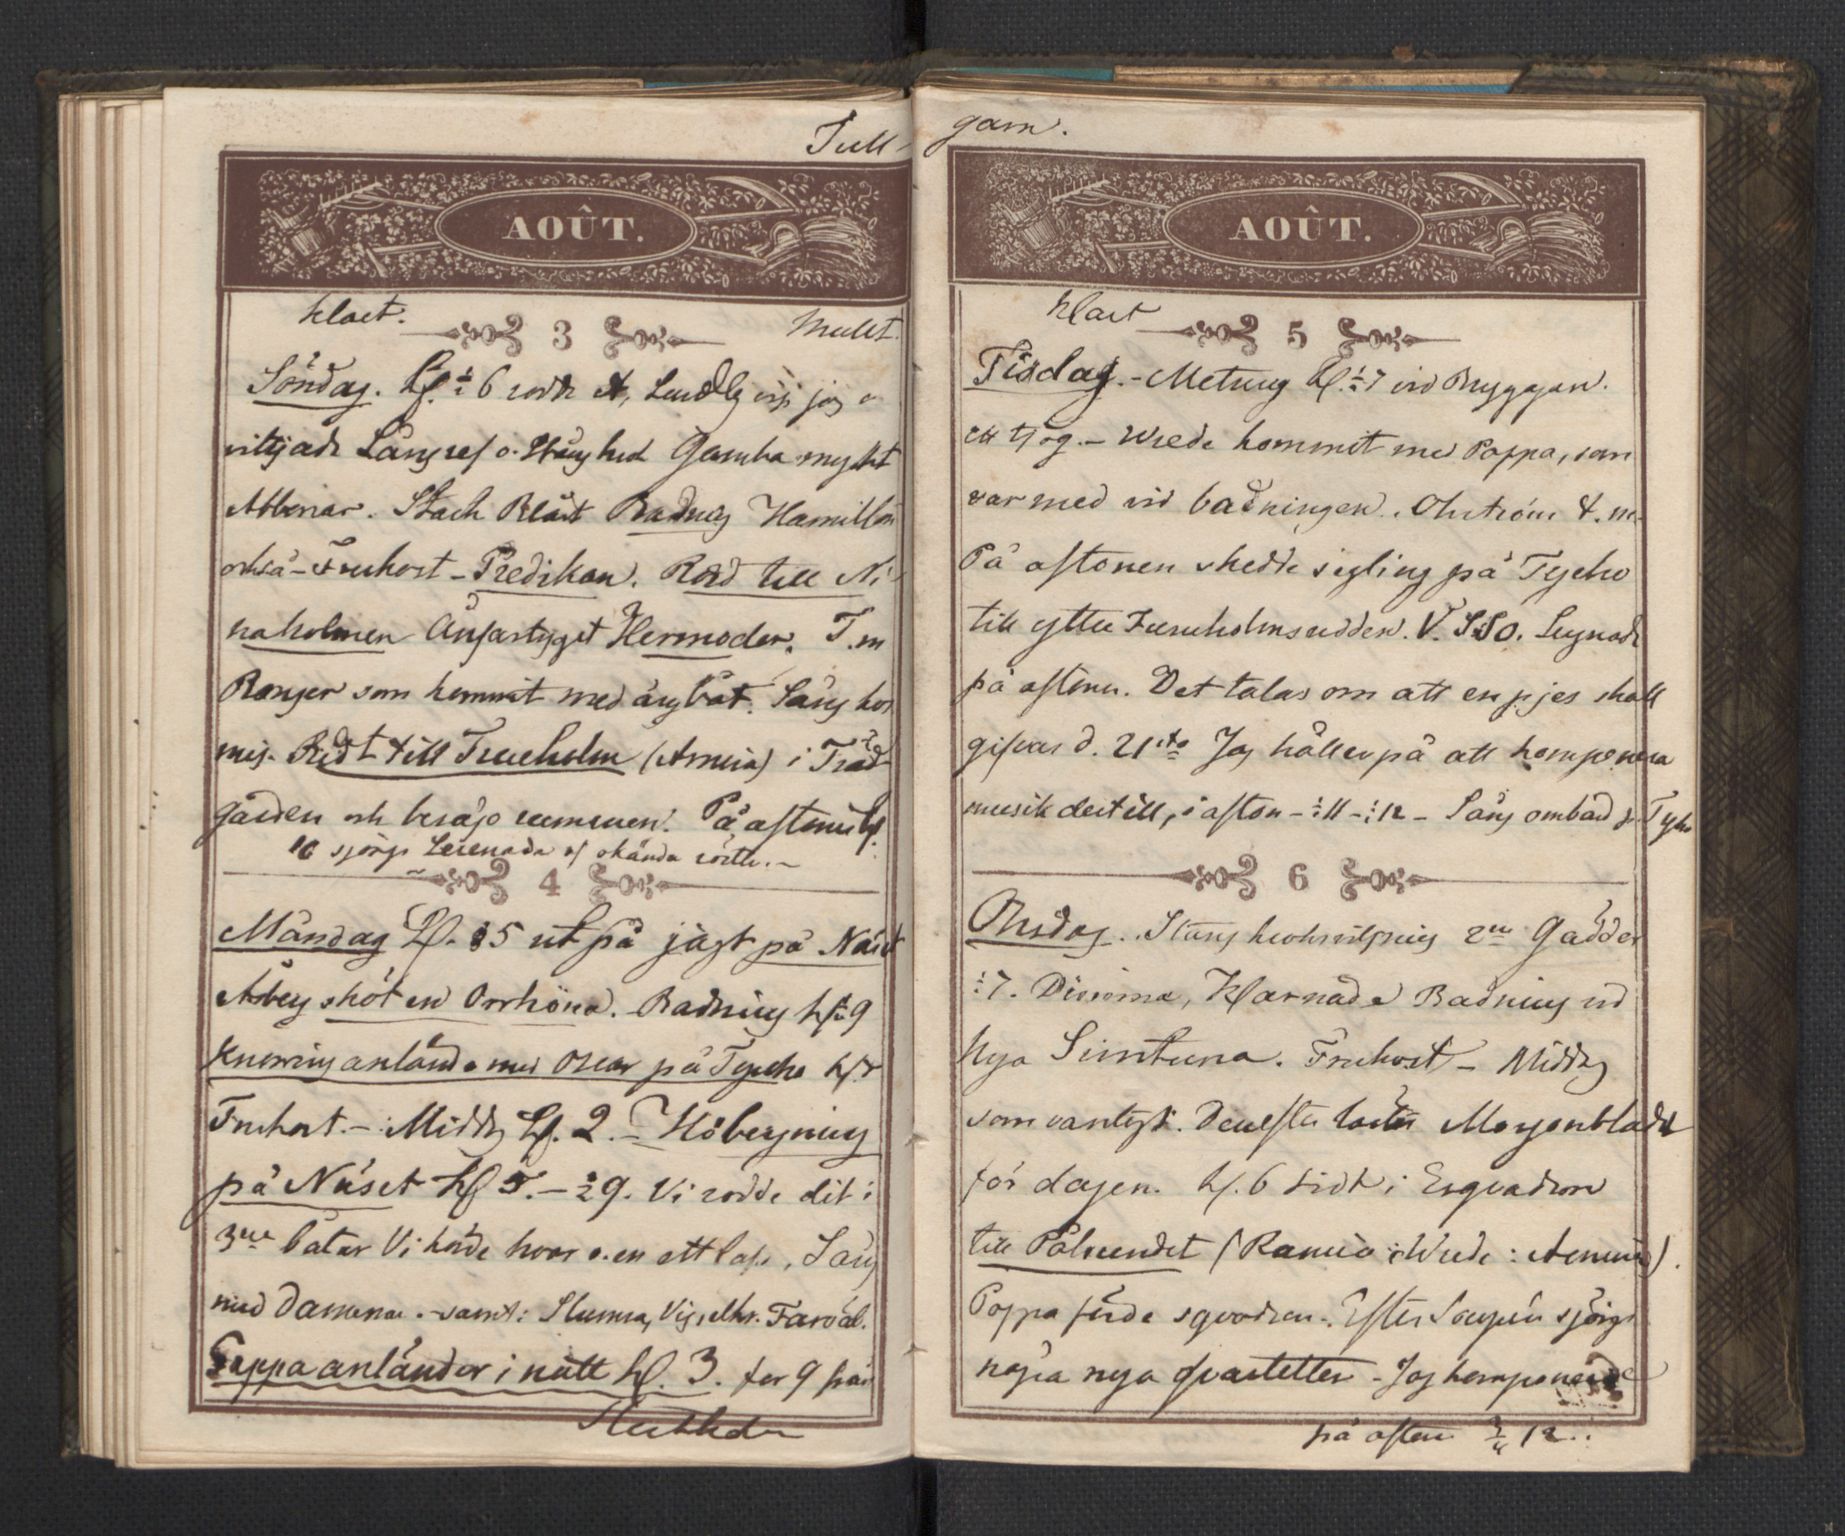 Tull-
AOÛT.
klart. 3 Mulet.
Söndag. Kl. ½ 6 rodde A, Lundbg jag o
vittjade Långref o. Stånghed Gamba mycket
Abborrar. Stark Blåst Badning Hamilton
också - Frukost - Predikan. Rodd till Ni-
naholmen Ångfartyget Hermoder. T.m
Ranger som kommit med ångbåt. Sång hos
mig. Ridt till Tureholm (Armira) i Träd-
gården och besågo rummen. På aftonen kl.
10 sjöngs Serenada af okända röster. -
4
Måndag Kl. 5 ut på jagt på Näset
Åberg sköt en Orrhöna. Badning kl. 9
Knorring anlände med Oscar på Tycho kl.
Frukost. - Middg kl. 2. - Höbergning
på Näset kl 5. - ½9. Vi rodde dit i
3ne båtar Vi hade hvar o. en ett lass, Sång
med Damerna. - samt: Slumra, Vigselkr. Farväl.
Pappa anländer i natt kl. 3. for 9 från
Stockholm
garn.
AOÛT.
klart 5
Tisdag. - Metning kl. ½ 7 vid Bryggan.
ett tjog. - Wrede kommit med Pappa, som
var med vid badningen. Ohström t. m.
På aftonen skedde segling på Tycho
till yttre Tureholmsudden. V. SSO. Lugnade
på aftonen. Det talas om att en pjes skall
gifvas d. 21sta Jag håller på att komponera
musik dertill, i afton - ½11 - ½12 - Sång ombord p. Tycho
6
Onsdag. Stångkroksvittjning 2ne Gäddor
½7. Dessema, Klarnade Badning vid
Nya Simtuna. Frukost - Middg
som vanligt. Derefter lästes Morgonbladet
för dagen. kl. 6 Ridt i Esqvadron
till Pålsundet (Ramiro: Wrede: Armira).
Pappa förde sqvadron. Efter Soupén sjöngs
några nya qvartetter - Jag komponerade
på aftonen ¾ 12.